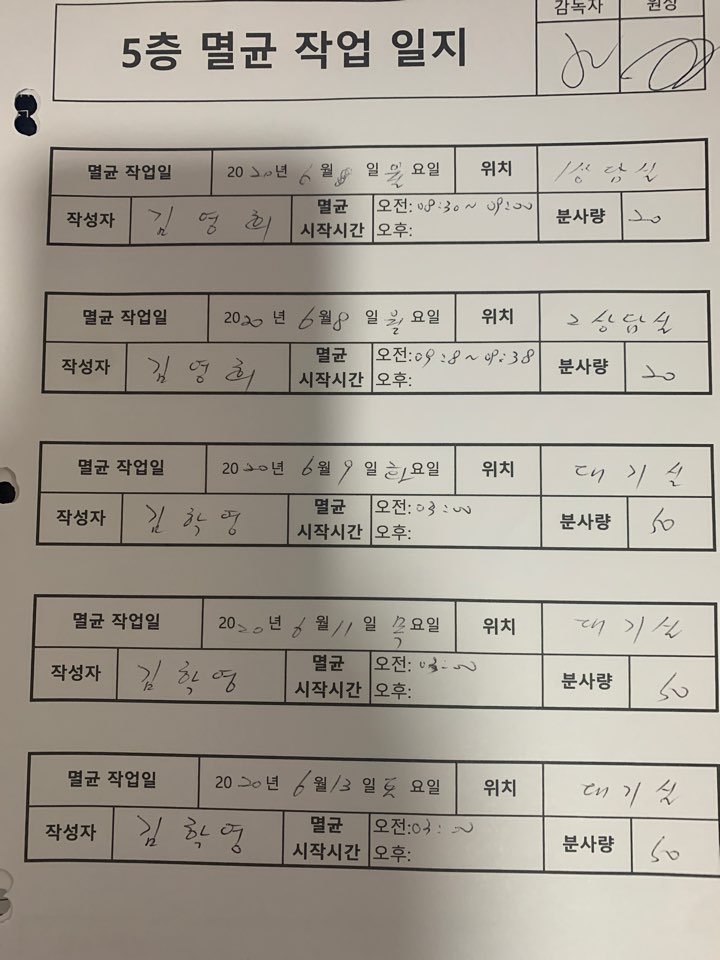 감독자 원장
5층 멸균 작업 일지
멸균 작업일 2020년 6월 8일 월요일 위치 1상담실
작성자 김영희 멸균 시작시간 오전: 08:30~09:00 분사량 20
오후:
멸균 작업일 2020년 6월 8일 월요일 위치 2상담실
작성자 김영희 멸균 시작시간 오전: 09:8~09:38 분사량 20
오후:
멸균 작업일 2020년 6월 9일 화요일 위치 대기실
작성자 김학영 멸균 시작시간 오전: 03:00 분사량 50
오후:
멸균 작업일 2020년 6월 11일 목요일 위치 대기실
작성자 김학영 멸균 시작시간 오전: 03:00 분사량 50
오후:
멸균 작업일 2020년 6월 13일 토요일 위치 대기실
작성자 김학영 멸균 시작시간 오전: 03:00 분사량 50
오후: